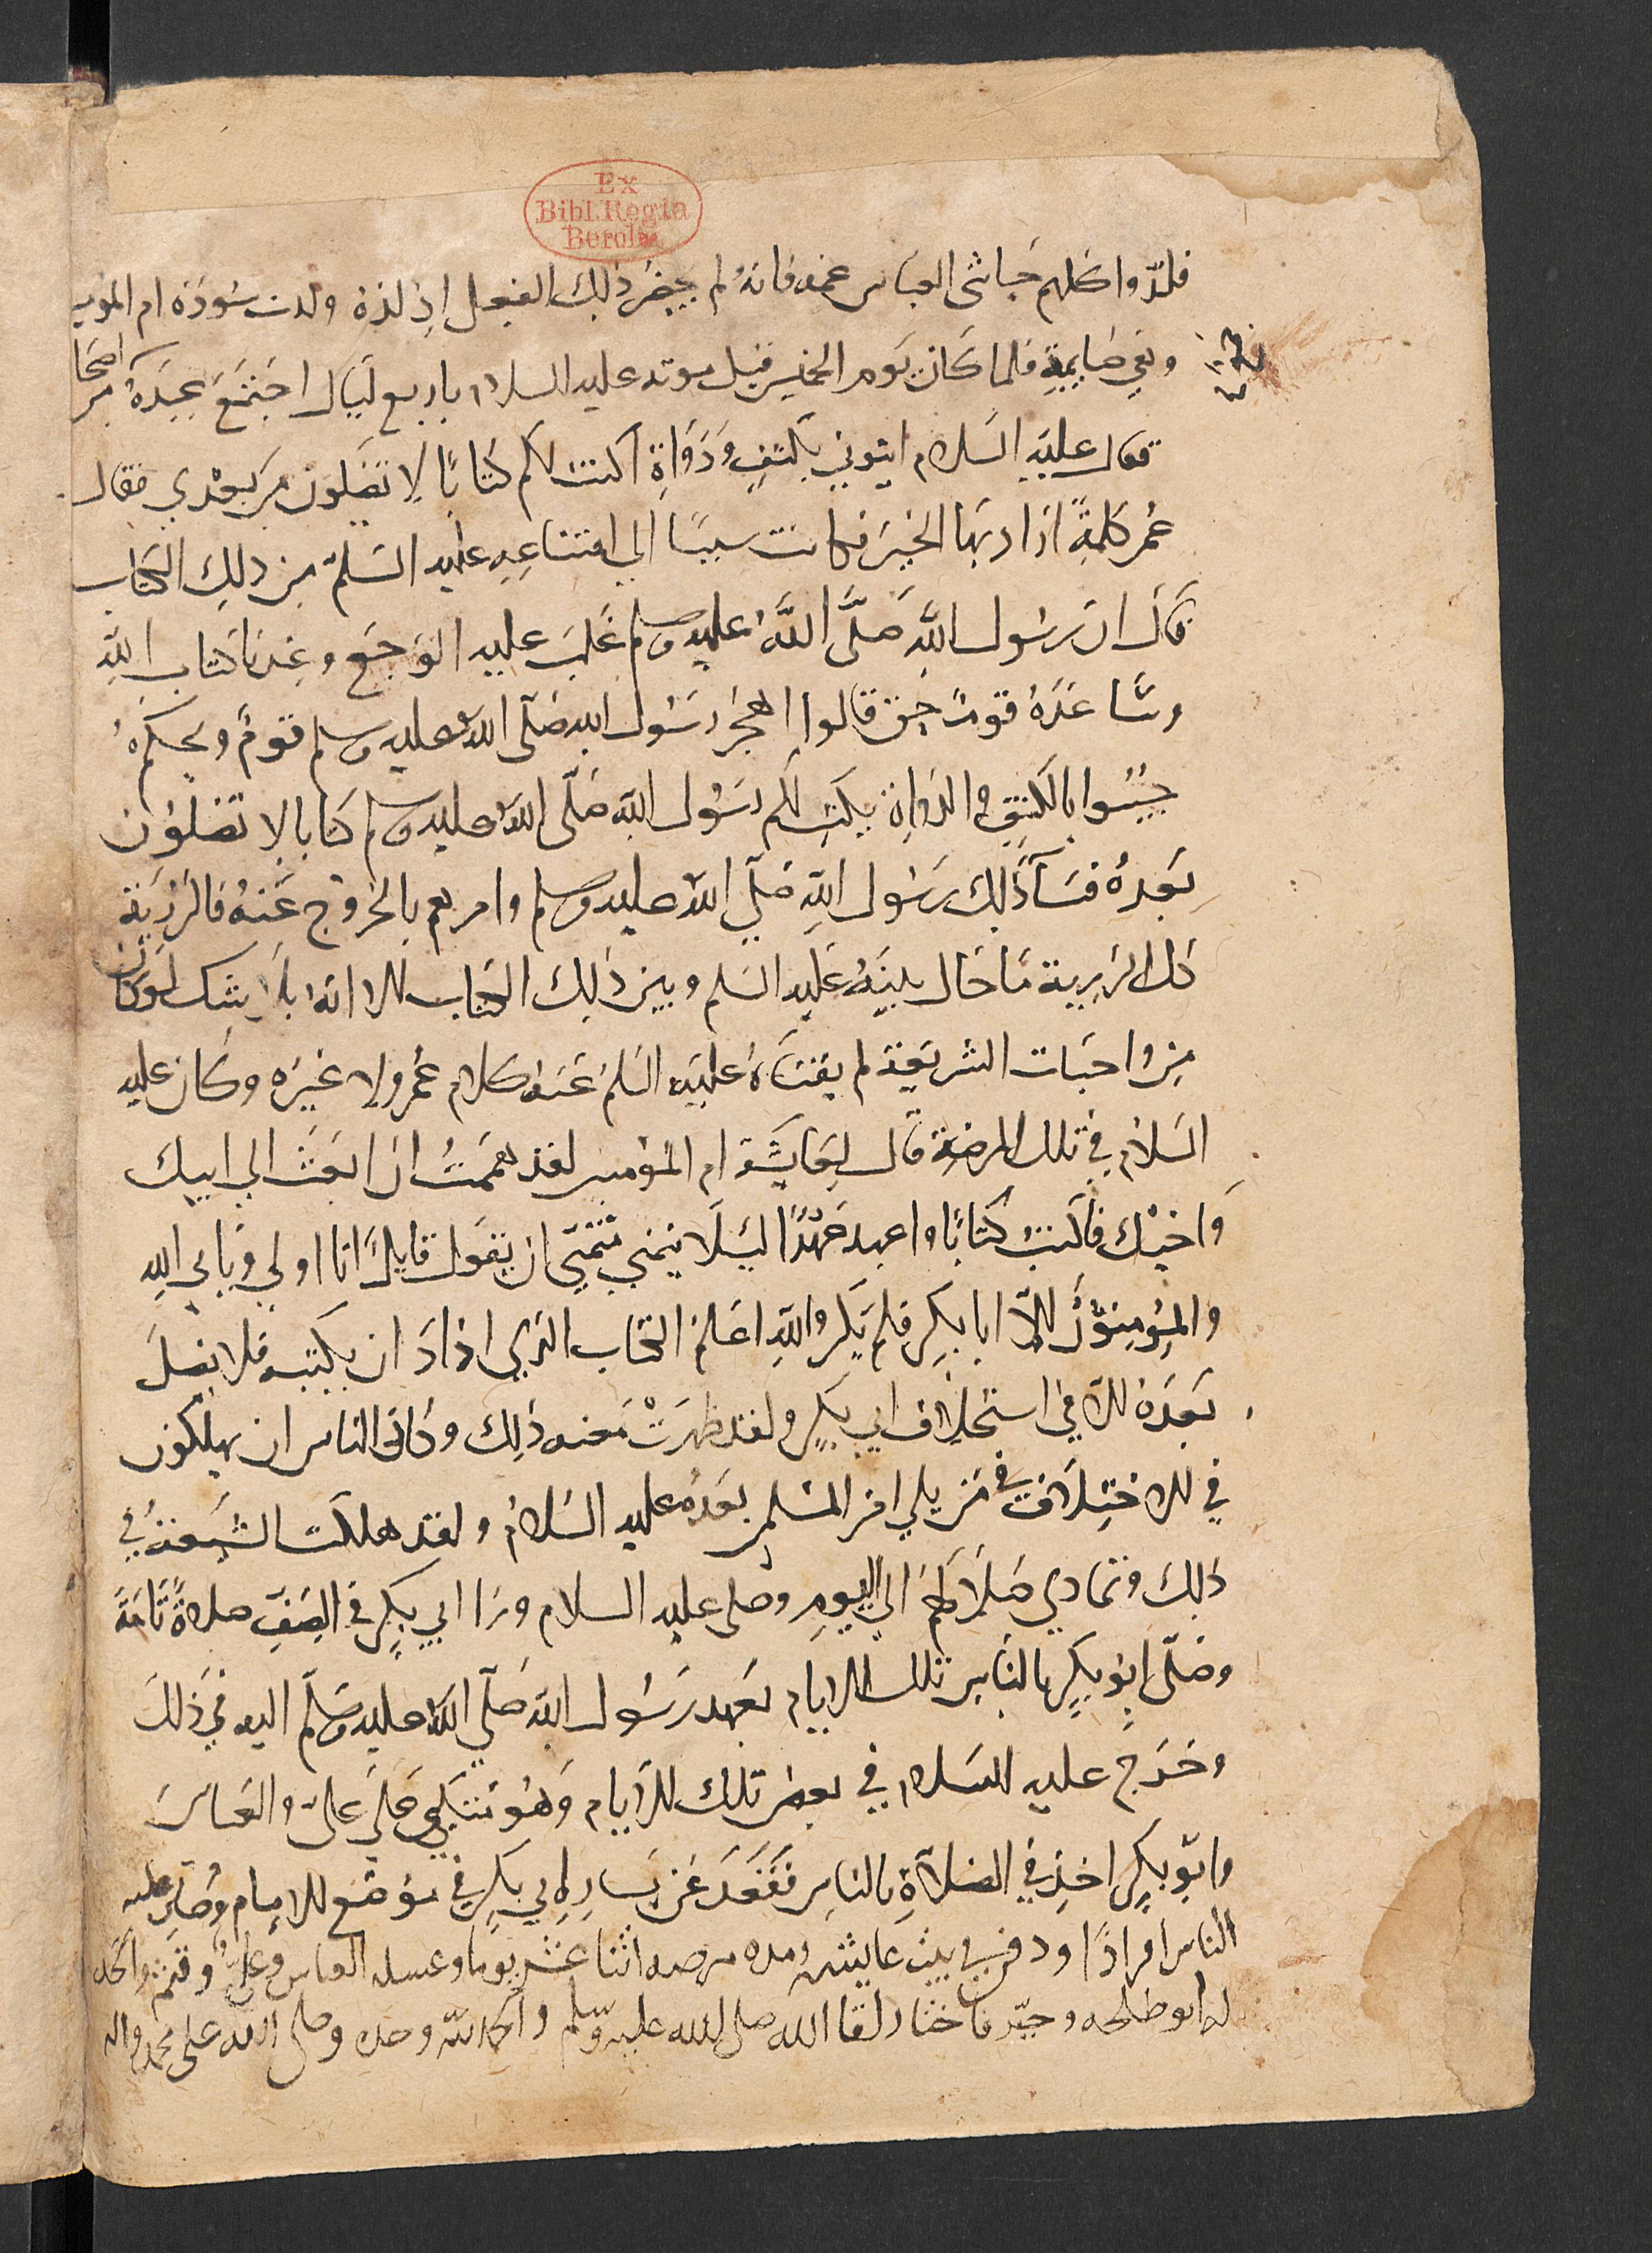 Ex
Bibl. Regia
Berolin.
فلدّوا كلهم حاشى العباس عمه فانه لم يحضر ذلك الفعل اذ لدوه ولدت سودة ام المومنين
وهي صايمة فلما كان يوم الخميس قبل موته عليه السلام باربع ليال اجتمع عنده من اصحابه
فقال عليه السلام ايتوني بكتف ودواة اكتب لكم كتابا لا تضلون من بعدي فقال
عمر كلمة اراد بها الخير فكانت سببا الى امتناعه عليه السلم من ذلك الكتاب
قال ان رسول الله صلى الله عليه وسلم غلب عليه الوجع وعندنا كتاب الله
وساعده قوم حتى قالوا اهجر رسول الله صلى الله عليه وسلم قوم ويحكم
جيبوا بالكتف والدواة يكتب لكم رسول الله صلى الله عليه وسلم كتابا لا تضلون
بعده فسآ ذلك رسول الله صلى الله عليه وسلم وامرهم بالخروج عنه فالرزية
كل الرزية ما حال بينه عليه السلم وبين ذلك الكتاب الا انه بلا شك لو كان
من واجبات الشريعة لم يثنه عليه السلم عنه كلام عمر ولا غيره وكان عليه
السلام في تلك المرضة قال لعايشة ام المؤمنين لقد هممت ان ابعث الى ابيك
واخيك فاكتب كتابا واعهد عهدا ليلا يتمنى متمني ان يقول قايل انا اولى ويابى الله
والمومنون الا ابا بكر فلم يكن والله اعلم الكتاب الذي اراد ان يكتبه فلا يضل
بعده الا في استخلاف ابي بكر ولقد ظهرت محنه ذلك وكاد الناس ان يهلكون
في الاختلاف في من يلي امر المسلمين بعده عليه السلام ولقد هلكت الشيعة في
ذلك وتمادي ضلالهم الى اليوم وصلى عليه السلام ورا ابي بكر في الصف صلاة تامة
وصلى ابو بكر بالناس تلك الايام بعهد رسول الله صلى الله عليه وسلم اليه في ذلك
وخرج عليه السلام في بعض تلك الايام وهو متكي على علي والعباس
وابو بكر اخذ في الصلاة بالناس فقعد عن يسار ابي بكر في موضع الامام وصلى عليه
الناس افرادا ودفن في بيت عايشه ومده مرضه اثنا عشر يوما وغسله العباس وعلي وقثم والحد
له ابو طلحه وخير فاختار لقا الله صلى الله عليه وسلم والحمد لله وحده وصلى الله على محمد واله